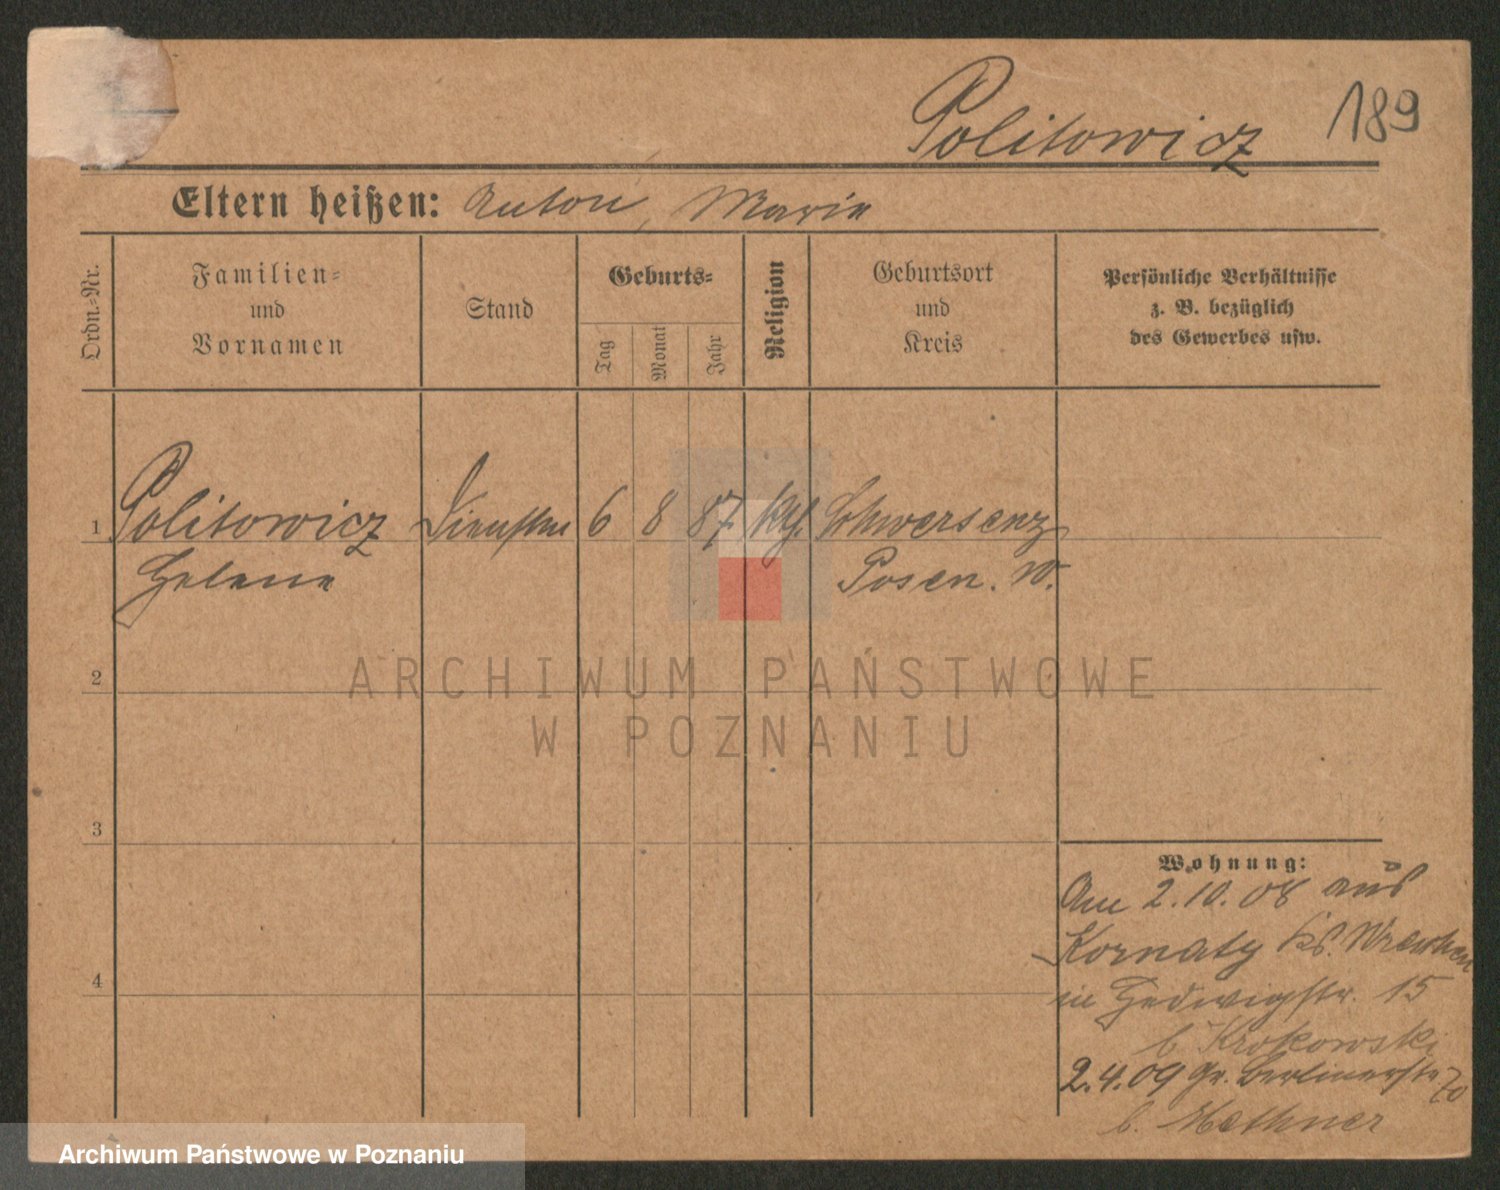 Politowicz 189
Eltern heißen: Anton, Marie
Ordn.-Nr.
Familien-
und
Vornamen
Stand
Geburts-
Tag
Monat
Jahr
Religion
Geburtsort
und
Kreis
Persönliche Verhältnisse
z. B. bezüglich
des Gewerbes usw.
1 Politowicz 6 8 87 kth. Schwersenz
Helene Posen. W.
2
3
4
Wohnung:
Am 2.10.08 aus
Kornaty Ks. Wreschen
in Hedwigstr. 15
b Krokowski
2.4.09 Gr. Berlinerstr 70
b. Methner
ARCHIWUM PAŃSTWOWE
W POZNANIU
Archiwum Państwowe w Poznaniu